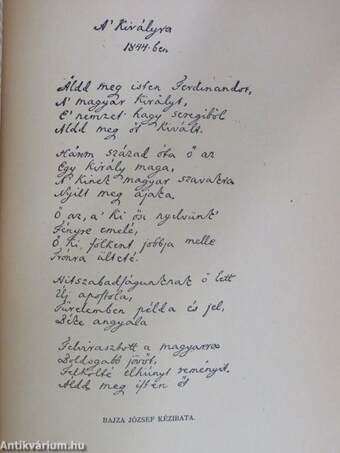 A' Királyra
1844-ben
Áldd meg isten Ferdinandot,
A' magyar királyt,
E' nemzet hagy seregiből
Áldd meg őt kivált.
Három század óta ő az
Egy király maga,
A' kinek magyar szavakra
Nyilt meg ajaka.
Ő az, a' ki ősi nyelvünk'
Fényre emelé,
Ő ki, fölkent jobbja melle
Trónra ülteté.
Hitszabadságunknak ő lett
Új apostola,
Türelemben példa és jel,
Béke angyala
Felvirasztott a magyarra
Boldogabb jövőt,
Felkölté elhúnyt reményit.
Áldd meg isten őt
BAJZA JÓZSEF KÉZIRATA.
Antikvárium.hu